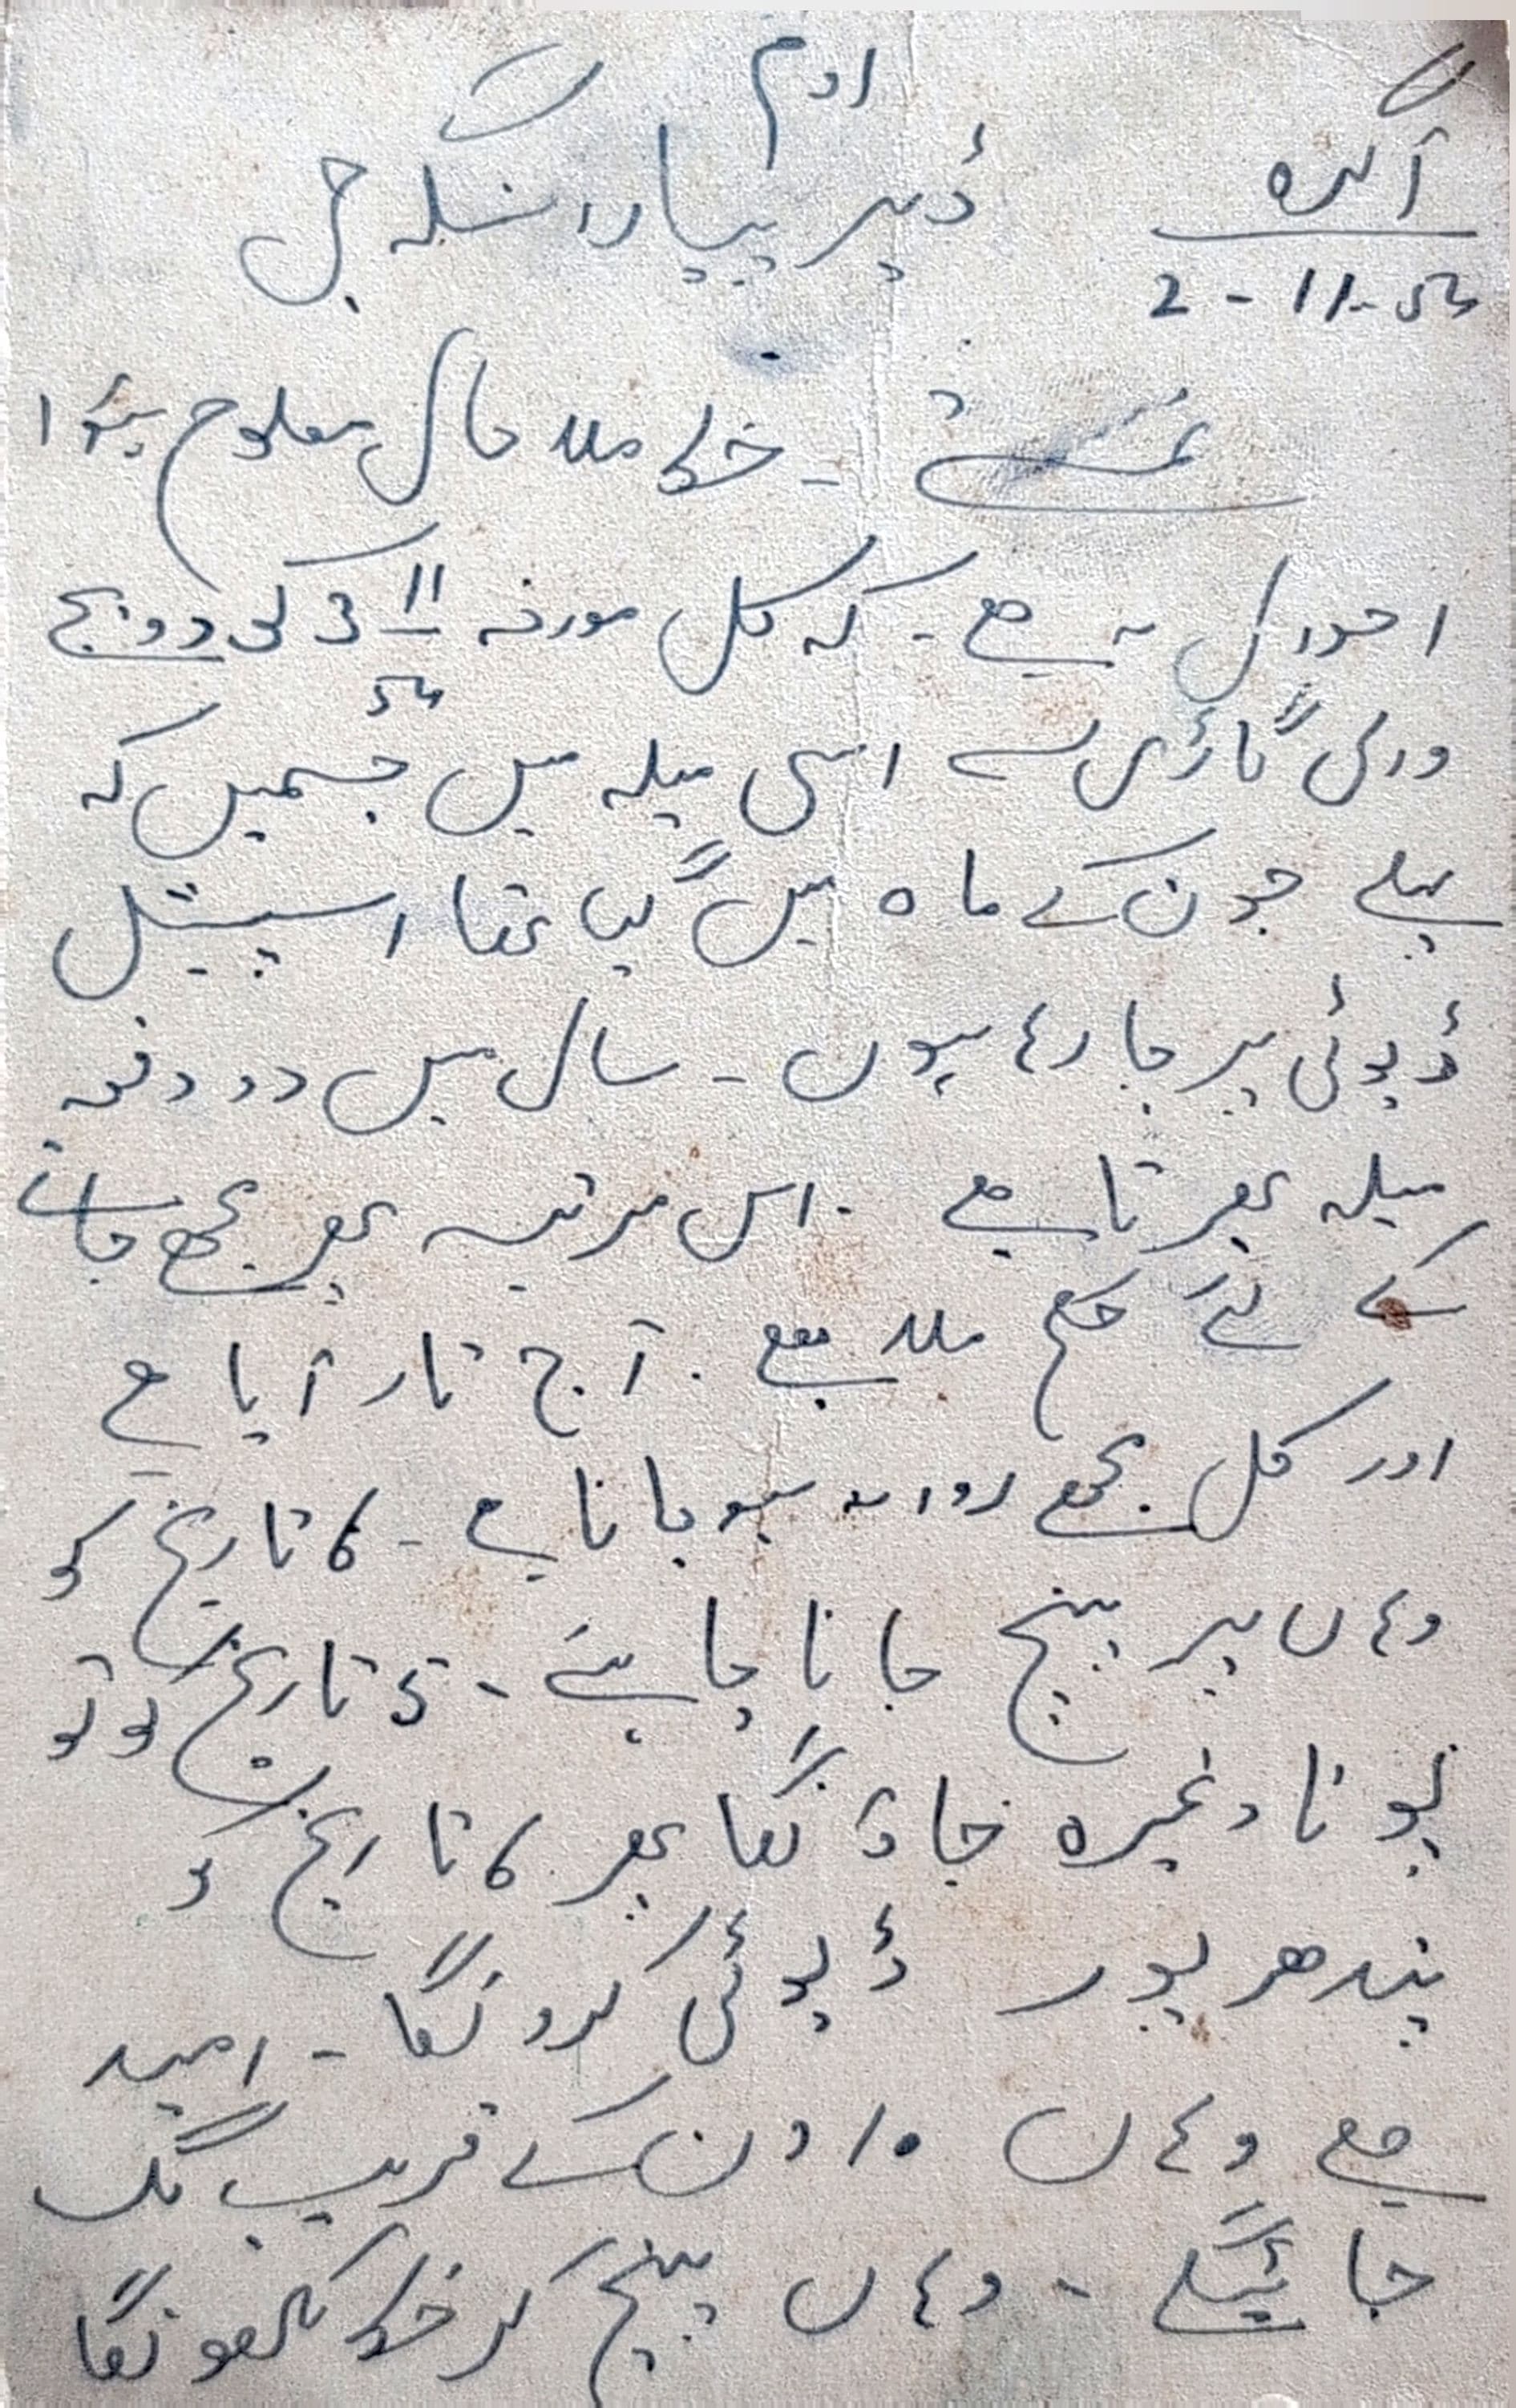 اوم
آگرہ
ڈیر پیارا سنگھ جی
2-11-
نمستے - خط ملا حال معلوم ہؤا
احوال یہ ہے - کہ کل مورخہ 3 11 کی دو بجے
والی گاڑی سے اسی میلہ میں جسمیں کہ
پہلے جون کے ماہ میں گیا تھا اسپیشل
ڈیوٹی پر جا رہا ہوں - سال میں دو دفعہ
میلہ بھرتا ہے - اس مرتبہ پھر مجھے جانے
کے لئے حکم ملا ہے - آج تار آیا ہے
اور کل مجھے روانہ ہو جانا ہے - 6 تاریخ کو
وہاں پر پہنچ جانا چاہئے - 5 تاریخ کو تو
پونا وغیرہ جاؤنگا پھر 6 تاریخ کو
پندھرپور ڈیوٹی کرونگا - امید
ہے وہاں 10 دن کے قریب لگ
جائینگے - وہاں پہنچ کر خط لکھونگا